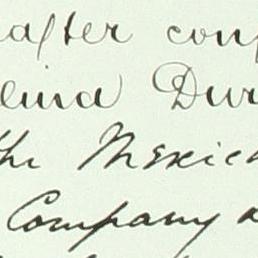 after con
elina Dur
the Mexica
Company a